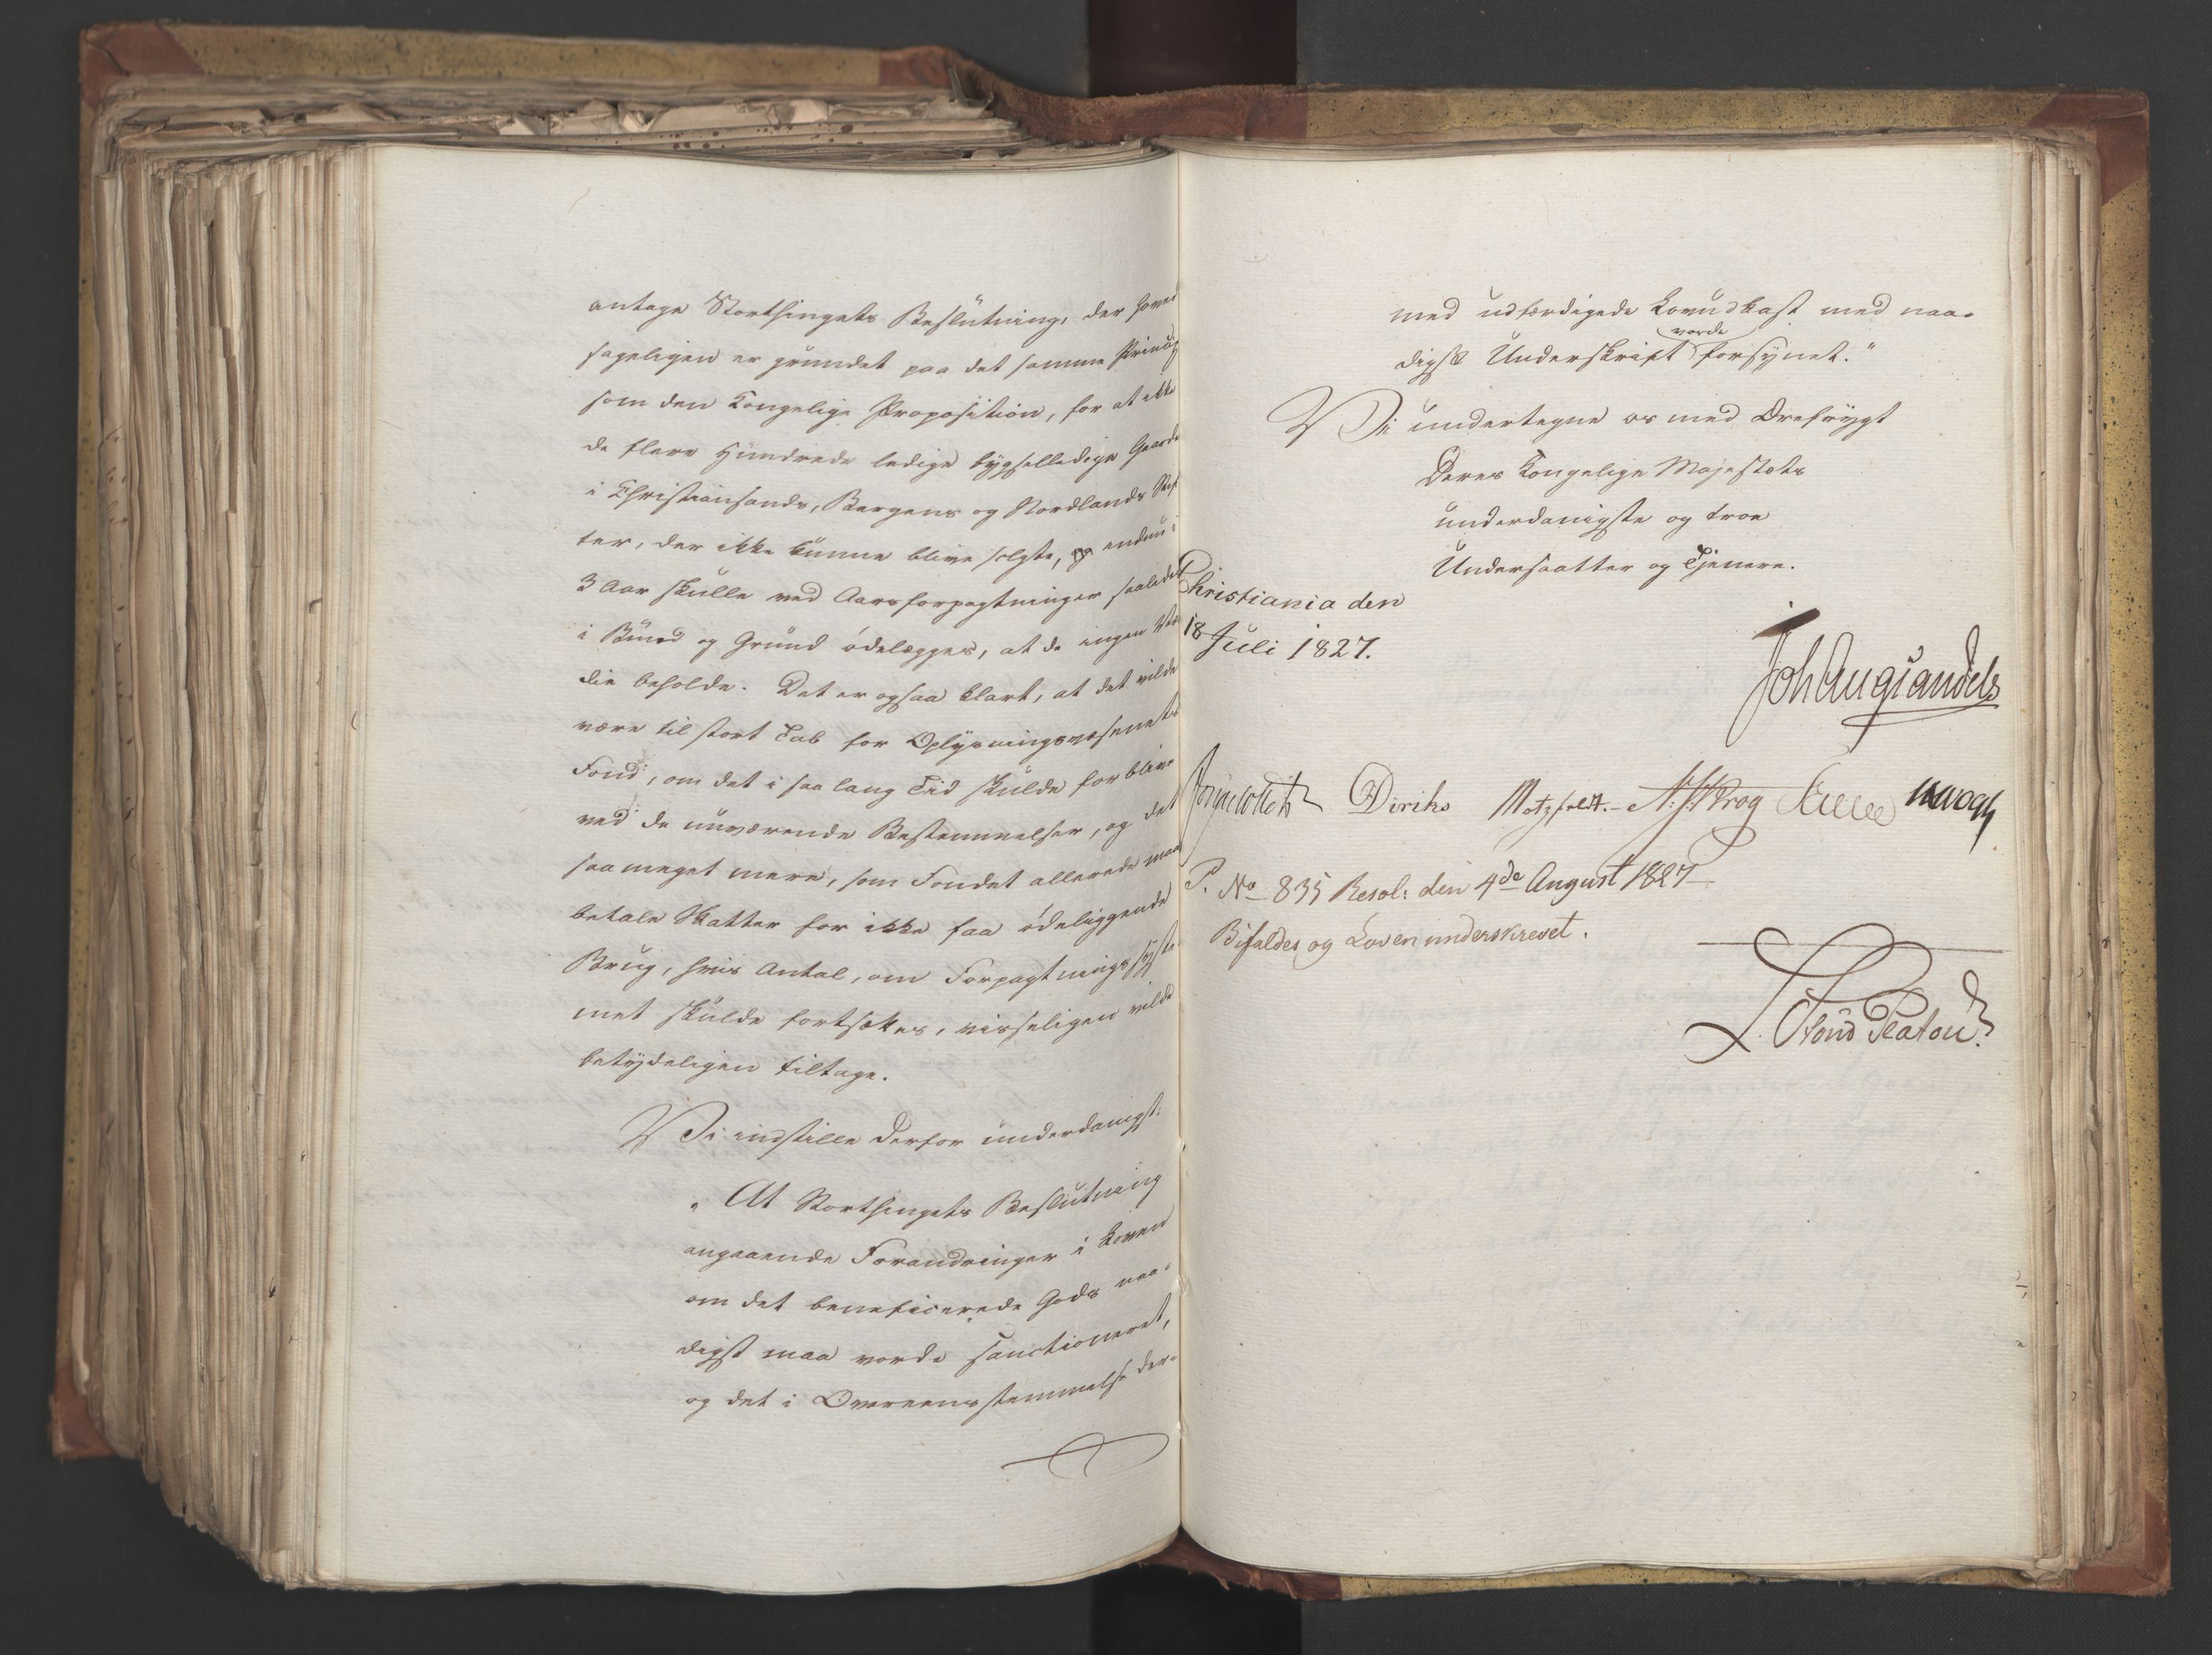 antage Storthingets Beslutning, der hoved
sageligen er grundet paa det samme Princip
som den Kongelige Proposition, for at ikke
de flere Hundrede ledige bygselledige Gaarde
i Christiansands, Bergens og Nordlands Stif
ter, der ikke kunne blive solgte, og endnu i
3 Aar skulle ved Aarsforpagtninger saaledes
i Bund og Grund ödelægges, at de ingen Vær
die beholde. Det er ogsaa klart, at det vilde
være til stort Tab for Oplysningsvæsenets
Fond, om det i saa lang Tid skulde forblive
ved de nuværende Bestemmelser, og det
saa meget mere, som Fondet allerede maa
betale Skatter for ikke faa ödeliggende
Brug, hvis Antal, om Forpagtningssyste
met skulde fortsættes, visseligen vilde
betydeligen tiltage.
Vi indstille derfor underdanigst:
„At Storthingets Beslutning
angaaende Forandringer i Loven
om det beneficerede Gods naa-
digst maa vorde sanctioneret,
og det i Overeensstemmelse der-
med udfærdigede Lovudkast med naa-
vorde
digst Underskrift forsynet."
Vi undertegne os med Ærefrygt
Deres Kongelige Majestæts
underdanigste og troe
Undersaatter og Tjenere.
Christiania den
18 Juli 1827.
Joh Aug Sandels
Jonas Collett Diriks Motzfeldt. Krog
P. No 835 Resol: den 4de August 1827
Bifaldes og Loven underskrevet.
Stoud Platou